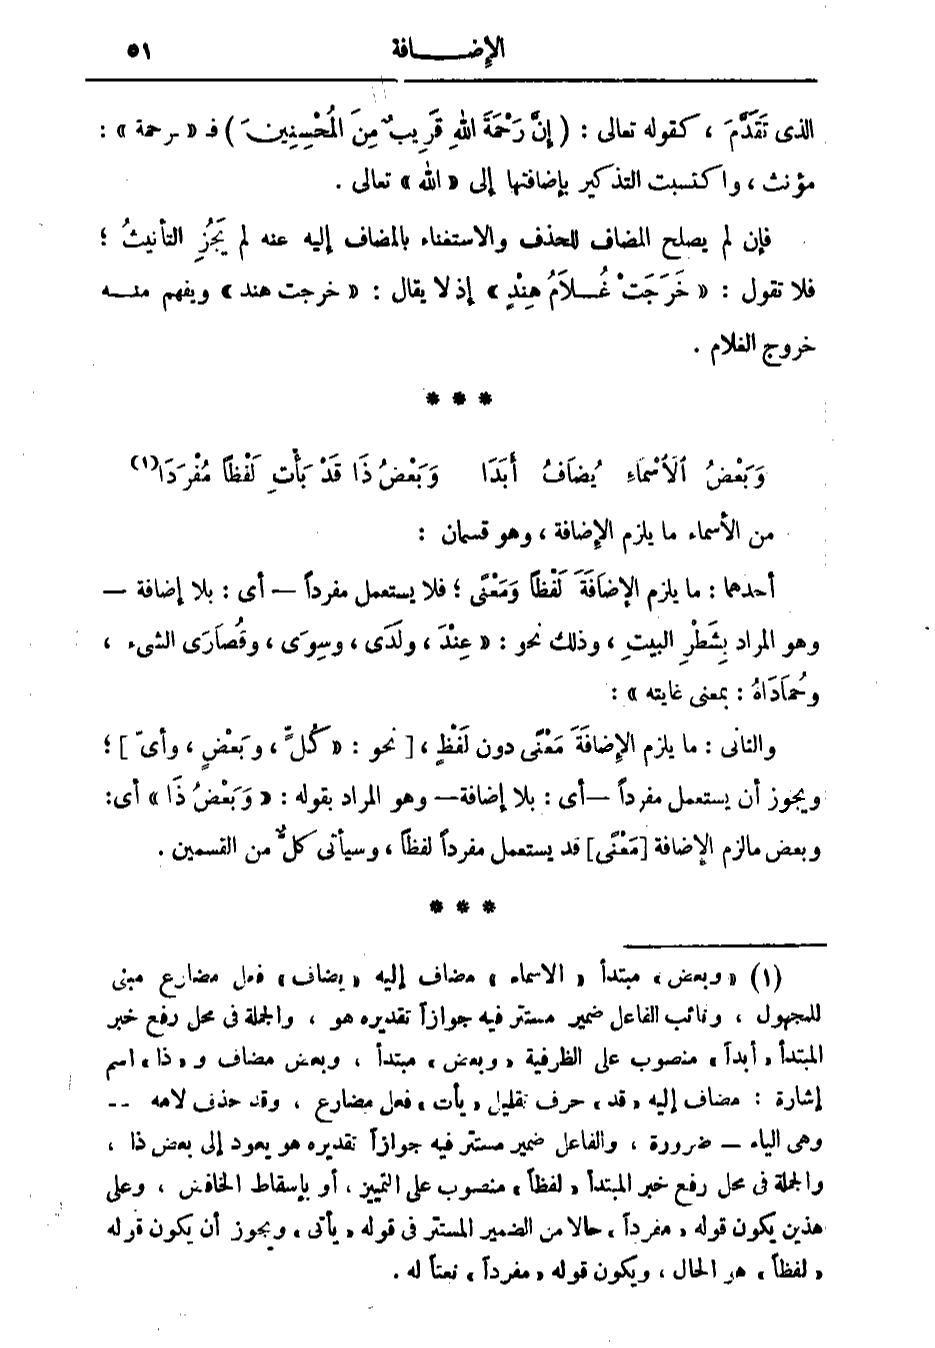 الإضـــافة ٥١
الذى تَقَدَّمَ ، كقوله تعالى : ( إِنَّ رَحْمَةَ اللهِ قَرِيبٌ مِنَ الْمُحْسِنِينَ ) فـ « رحمة » :
مؤنث ، واكتسبت التذكير بإضافتها إلى « الله » تعالى .
فإن لم يصلح المضاف للحذف والاستغناء بالمضاف إليه عنه لم يَجُزِ التأنيثُ ؛
فلا تقول : « خَرَجَتْ غُـلاَمُ هِنْدٍ » إذ لا يقال : « خرجت هند » ويفهم منـه
خروج الغلام .
* * *
وَبَعْضُ الْأَسْمَاءِ يُضَافُ أَبَدَا وَبَعْضُ ذَا قَدْ يَأْتِ لَفْظًا مُفْرَدَا (١)
من الأسماء ما يلزم الإضافة ، وهو قسمان :
أحدهما : ما يلزم الإضَافَةَ لَفْظًا وَمَعْنًى ؛ فلا يستعمل مفرداً — أى : بلا إضافة —
وهو المراد بِشَطْرِ البيتِ ، وذلك نحو : « عِنْدَ ، ولَدَى ، وسِوَى ، وقُصَارَى الشىء ،
وحُمَادَاهُ : بمعنى غايته » :
والثانى : ما يلزم الإضَافَةَ مَعْنًى دون لَفْظٍ ، [ نحو : « كُلٍّ ، وبَعْضٍ ، وأىّ ] ؛
ويجوز أن يستعمل مفرداً —أى : بلا إضافة— وهو المراد بقوله : « وَبَعْضُ ذَا » أى:
وبعض مالزم الإضافة [مَعْنًى] قد يستعمل مفرداً لفظاً ، وسيأتى كلٌّ من القسمين .
* * *
(١) « وبعض » مبتدأ « الأسماء » مضاف إليه « يضاف » فعل مضارع مبنى
للمجهول ، ونائب الفاعل ضمير مستتر فيه جوازاً تقديره هو ، والجملة فى محل رفع خبر
المبتدأ « أبداً » منصوب على الظرفية « وبعض » مبتدأ ، وبعض مضاف و « ذا » اسم
إشارة : مضاف إليه « قد » حرف تقليل « يأت » فعل مضارع ، وقد حذف لامه --
وهى الياء — ضرورة ، والفاعل ضمير مستتر فيه جوازاً تقديره هو يعود إلى بعض ذا ،
والجملة فى محل رفع خبر المبتدأ « لفظاً » منصوب على التمييز ، أو بإسقاط الخافض ، وعلى
هذين يكون قوله « مفرداً » حالا من الضمير المستتر فى قوله « يأتى » ويجوز أن يكون قوله
« لفظاً » هو الحال ، ويكون قوله « مفرداً » نعتاً له .